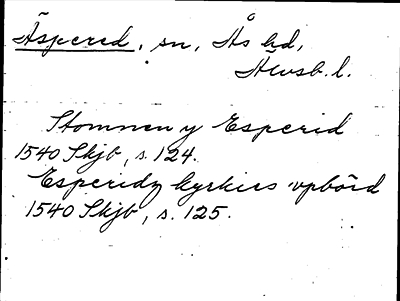 Äspered, sn, Ås hd,
Älvsb. l.
Stommen y Esperid
1540 Skjb, s. 124.
Esperidz kyrkies vpbörd
1540 Skjb, s. 125.